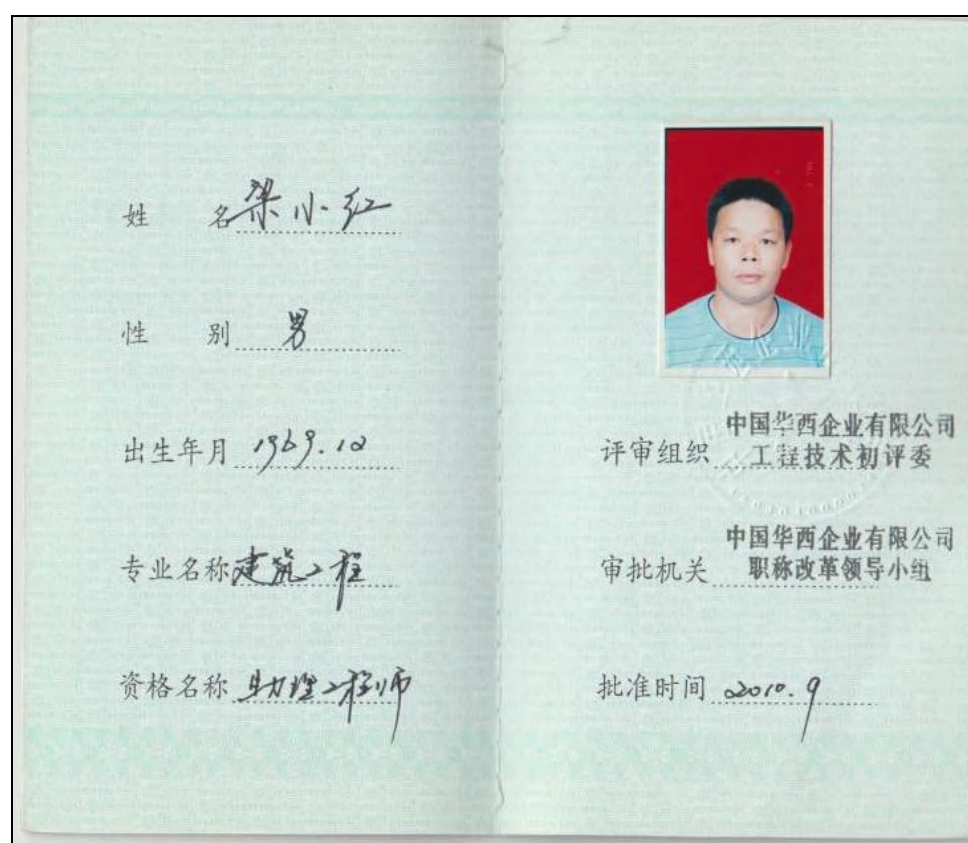 姓 名 梁小红
性 别 男
出生年月 1969.12
专业名称 建筑工程
资格名称 助理工程师
评审组织 中国华西企业有限公司
工程技术初评委
审批机关 中国华西企业有限公司
职称改革领导小组
批准时间 2010.9